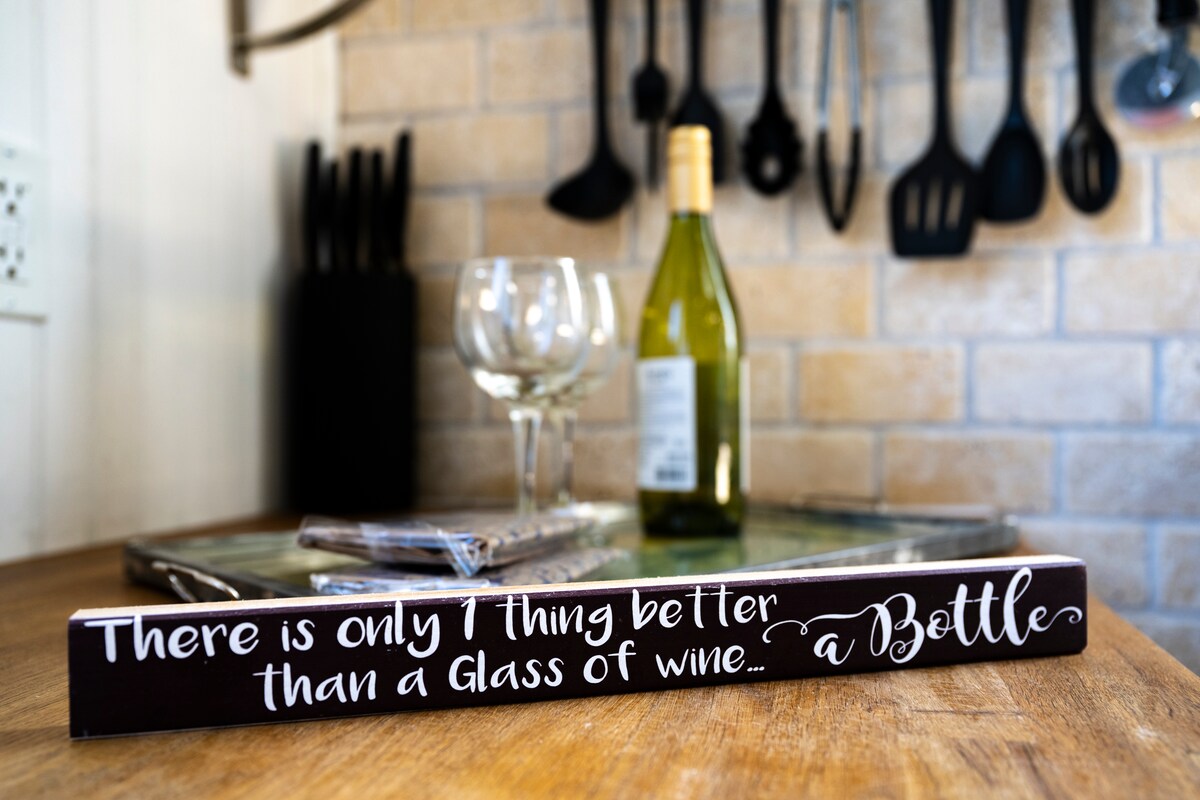 There is only 1 thing better
than a Glass of wine...
a Bottle